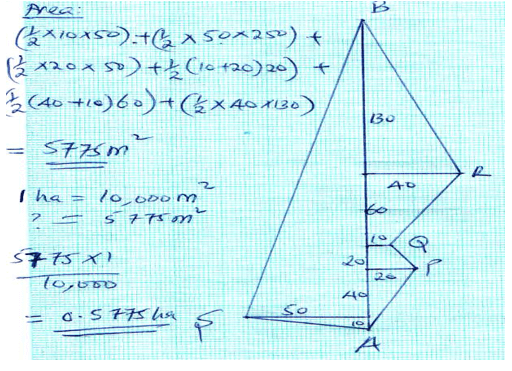 Area:
(½×10×50)+(½×50×250)+
(½×20×50)+½(10+20)20)+
½(40+10)60)+(½×40×130)
= 5775m²
1 ha = 10,000m²
? = 5775m²
5775×1
10,000
= 0.5775ha
B
130
40
R
60
10
Q
20
20
P
40
50
10
S
A